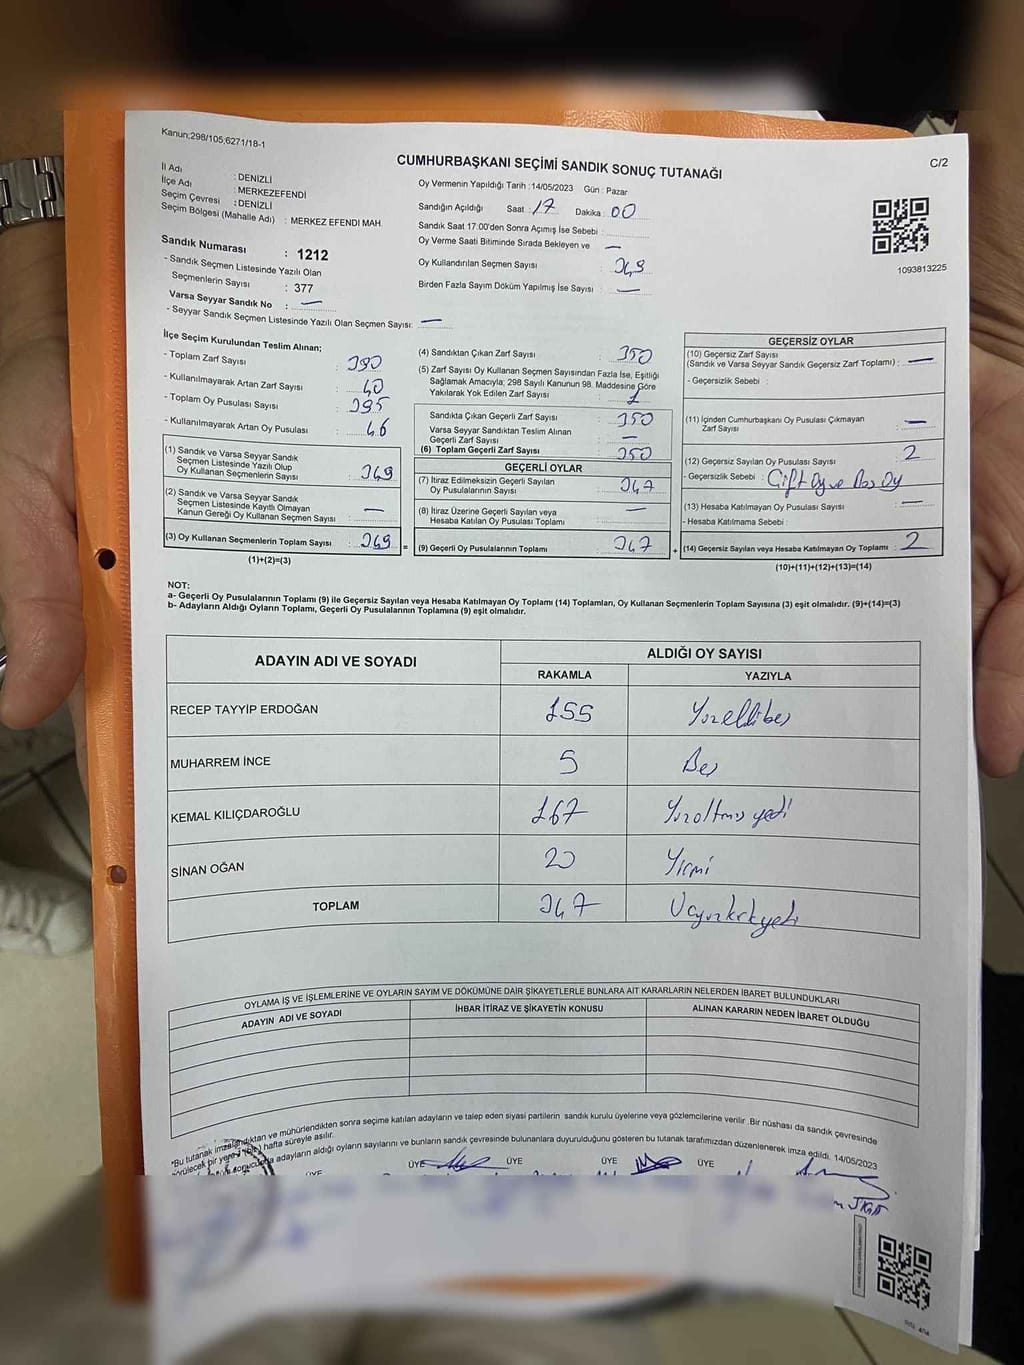 Kanun;298/105;6271/18-1
CUMHURBAŞKANI SEÇİMİ SANDIK SONUÇ TUTANAĞI
C/2
İl Adı : DENİZLİ
İlçe Adı : MERKEZEFENDİ
Seçim Çevresi : DENİZLİ
Seçim Bölgesi (Mahalle Adı) : MERKEZ EFENDİ MAH.
Sandık Numarası : 1212
- Sandık Seçmen Listesinde Yazılı Olan
Seçmenlerin Sayısı : 377
Varsa Seyyar Sandık No : —
- Seyyar Sandık Seçmen Listesinde Yazılı Olan Seçmen Sayısı: —
Oy Vermenin Yapıldığı Tarih : 14/05/2023 Gün : Pazar
Sandığın Açıldığı Saat : 17 Dakika : 00
Sandık Saat 17:00'den Sonra Açımış İse Sebebi :
Oy Verme Saati Bitiminde Sırada Bekleyen ve —
Oy Kullandırılan Seçmen Sayısı : 349
Birden Fazla Sayım Döküm Yapılmış İse Sayısı : —
1093813225
İlçe Seçim Kurulundan Teslim Alınan;
- Toplam Zarf Sayısı : 390
- Kullanılmayarak Artan Zarf Sayısı : 40
- Toplam Oy Pusulası Sayısı : 395
- Kullanılmayarak Artan Oy Pusulası : 46
(1) Sandık ve Varsa Seyyar Sandık
Seçmen Listesinde Yazılı Olup
Oy Kullanan Seçmenlerin Sayısı : 349
(2) Sandık ve Varsa Seyyar Sandık
Seçmen Listesinde Kayıtlı Olmayan
Kanun Gereği Oy Kullanan Seçmen Sayısı : —
(3) Oy Kullanan Seçmenlerin Toplam Sayısı : 349
(1)+(2)=(3)
(4) Sandıktan Çıkan Zarf Sayısı : 350
(5) Zarf Sayısı Oy Kullanan Seçmen Sayısından Fazla İse, Eşitliği
Sağlamak Amacıyla; 298 Sayılı Kanunun 98. Maddesine Göre
Yakılarak Yok Edilen Zarf Sayısı : 1
Sandıkta Çıkan Geçerli Zarf Sayısı : 350
Varsa Seyyar Sandıktan Teslim Alınan
Geçerli Zarf Sayısı : —
(6) Toplam Geçerli Zarf Sayısı : 350
GEÇERLİ OYLAR
(7) İtiraz Edilmeksizin Geçerli Sayılan
Oy Pusulalarının Sayısı : 347
(8) İtiraz Üzerine Geçerli Sayılan veya
Hesaba Katılan Oy Pusulası Toplamı : —
= (9) Geçerli Oy Pusulalarının Toplamı : 347
GEÇERSİZ OYLAR
(10) Geçersiz Zarf Sayısı
(Sandık ve Varsa Seyyar Sandık Geçersiz Zarf Toplamı) : —
- Geçersizlik Sebebi :
(11) İçinden Cumhurbaşkanı Oy Pusulası Çıkmayan
Zarf Sayısı : —
(12) Geçersiz Sayılan Oy Pusulası Sayısı : 2
- Geçersizlik Sebebi : Çift Oy ve Boş Oy
(13) Hesaba Katılmayan Oy Pusulası Sayısı : —
- Hesaba Katılmama Sebebi :
+ (14) Geçersiz Sayılan veya Hesaba Katılmayan Oy Toplamı : 2
(10)+(11)+(12)+(13)=(14)
NOT:
a- Geçerli Oy Pusulalarının Toplamı (9) ile Geçersiz Sayılan veya Hesaba Katılmayan Oy Toplamı (14) Toplamları, Oy Kullanan Seçmenlerin Toplam Sayısına (3) eşit olmalıdır. (9)+(14)=(3)
b- Adayların Aldığı Oyların Toplamı, Geçerli Oy Pusulalarının Toplamına (9) eşit olmalıdır.
ADAYIN ADI VE SOYADI ALDIĞI OY SAYISI
RAKAMLA YAZIYLA
RECEP TAYYİP ERDOĞAN 155 Yüzellibeş
MUHARREM İNCE 5 Beş
KEMAL KILIÇDAROĞLU 167 Yüzaltmış yedi
SİNAN OĞAN 20 Yirmi
TOPLAM 347 Üçyüzkırkyedi
OYLAMA İŞ VE İŞLEMLERİNE VE OYLARIN SAYIM VE DÖKÜMÜNE DAİR ŞİKAYETLERLE BUNLARA AİT KARARLARIN NELERDEN İBARET BULUNDUKLARI
ADAYIN ADI VE SOYADI İHBAR İTİRAZ VE ŞİKAYETİN KONUSU ALINAN KARARIN NEDEN İBARET OLDUĞU
*Bu tutanak imzalandıktan ve mühürlendikten sonra seçime katılan adayların ve talep eden siyasi partilerin sandık kurulu üyelerine veya gözlemcilerine verilir. Bir nüshası da sandık çevresinde
görülecek bir yere 1 (bir) hafta süreyle asılır.
sonucunda adayların aldığı oyların sayılarını ve bunların sandık çevresinde bulunanlara duyurulduğunu gösteren bu tutanak tarafımızdan düzenlenerek imza edildi. 14/05/2023
ÜYE ÜYE ÜYE ÜYE ÜYE